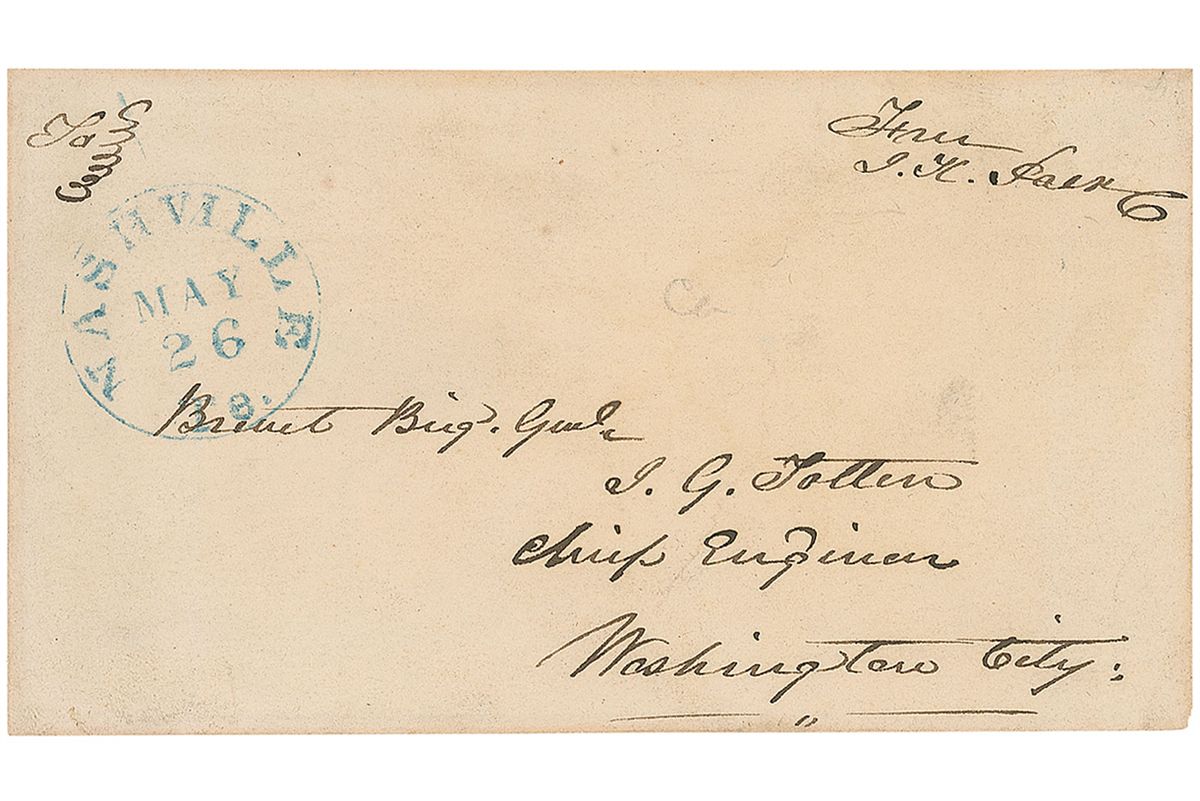 Free
J. K. Polk
NASHVILLE
MAY
26
Brevet Brig. Genl.
J. G. Totten
Chief Engineer
Washington City:
"